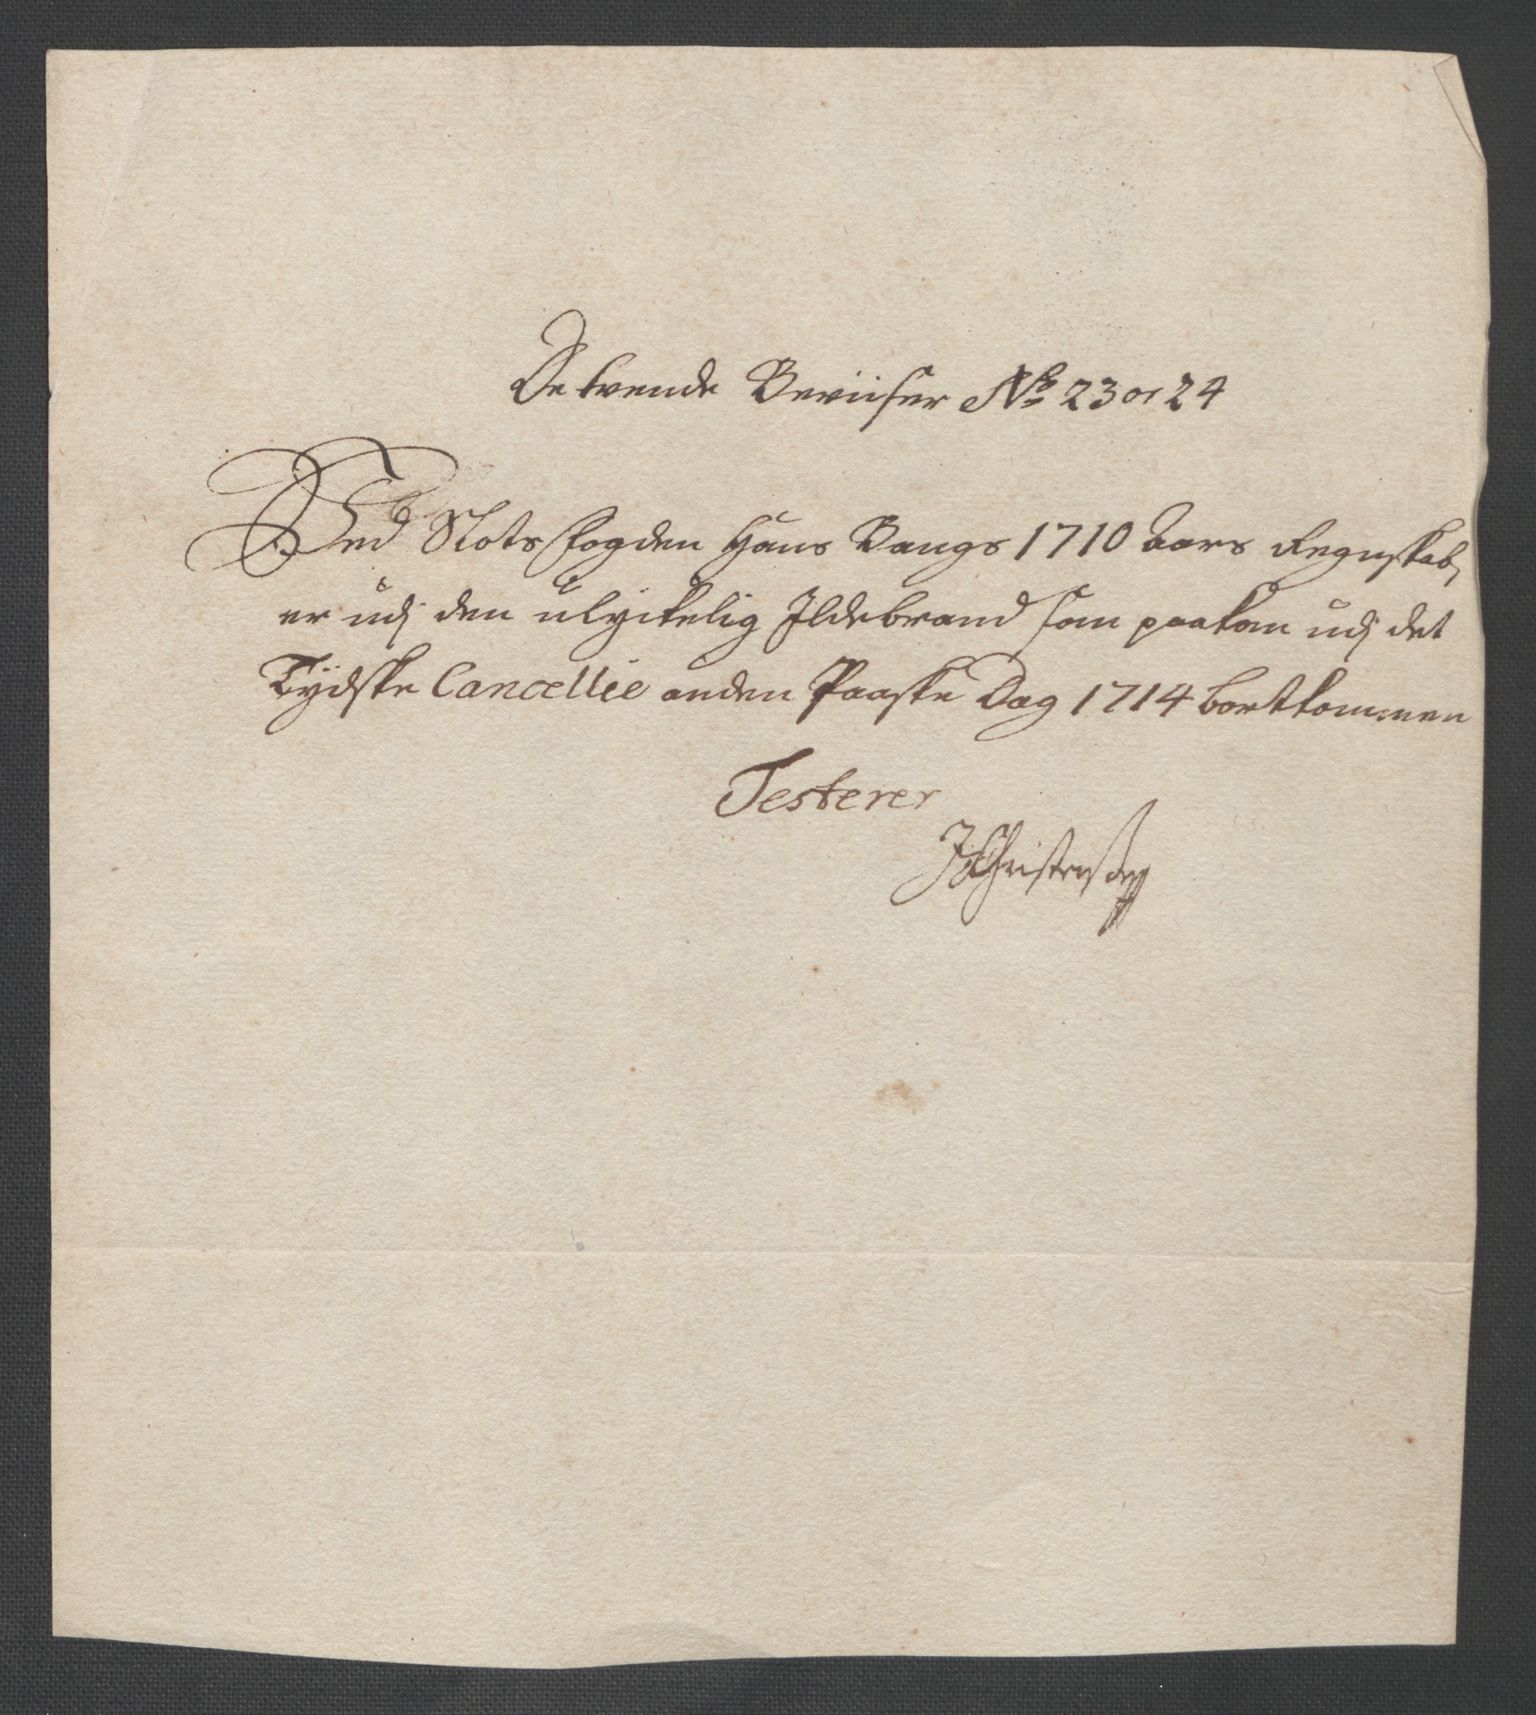 De tvende Beviiser No 23 or 24
Ved Slots Fogden Hans Bangs 1710 Aars Regnskab,
er udj den ulyckelig Ildebrand som paakom udj det
Tydske Cancellie anden Paaske Dag 1714 bortkommen
Testerer